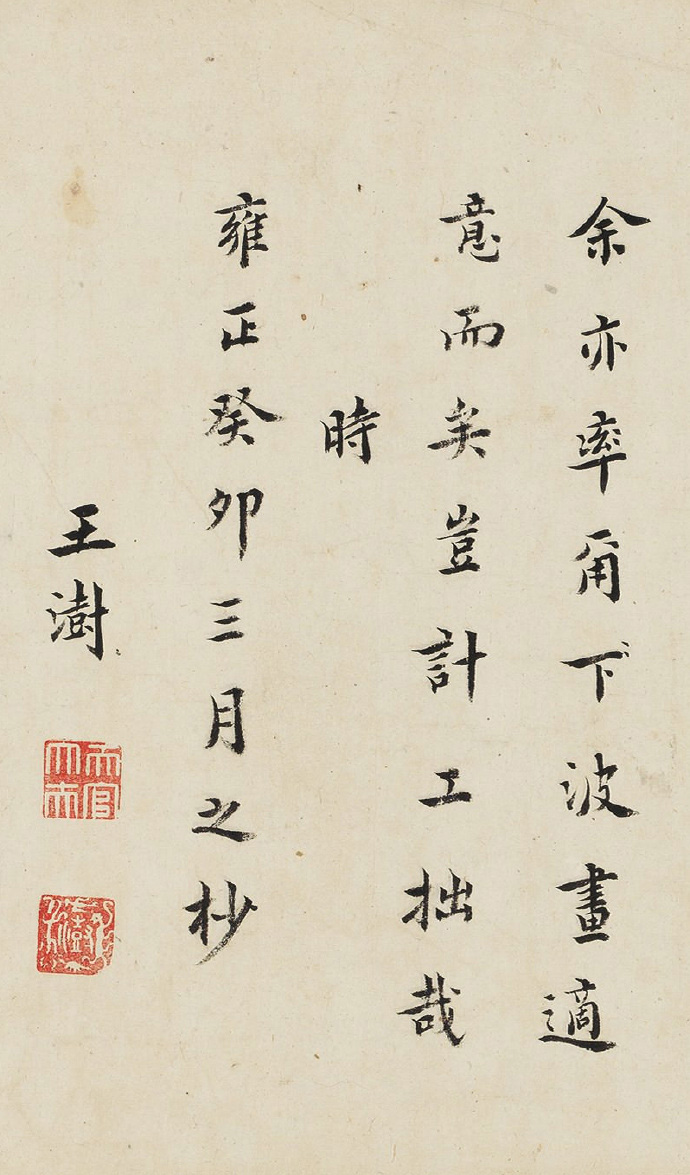 余亦率甭下波畫適
意而矣豈計工拙哉
時
雍正癸卯三月之杪
王澍